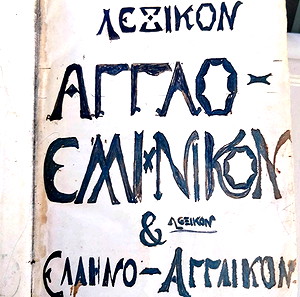 ΛΕΞΙΚΟΝ
ΑΓΓΛΟ-
ΕΛΛΗΝΙΚΟΝ
& ΛΕΞΙΚΟΝ
ΕΛΛΗΝΟ-ΑΓΓΛΙΚΟΝ